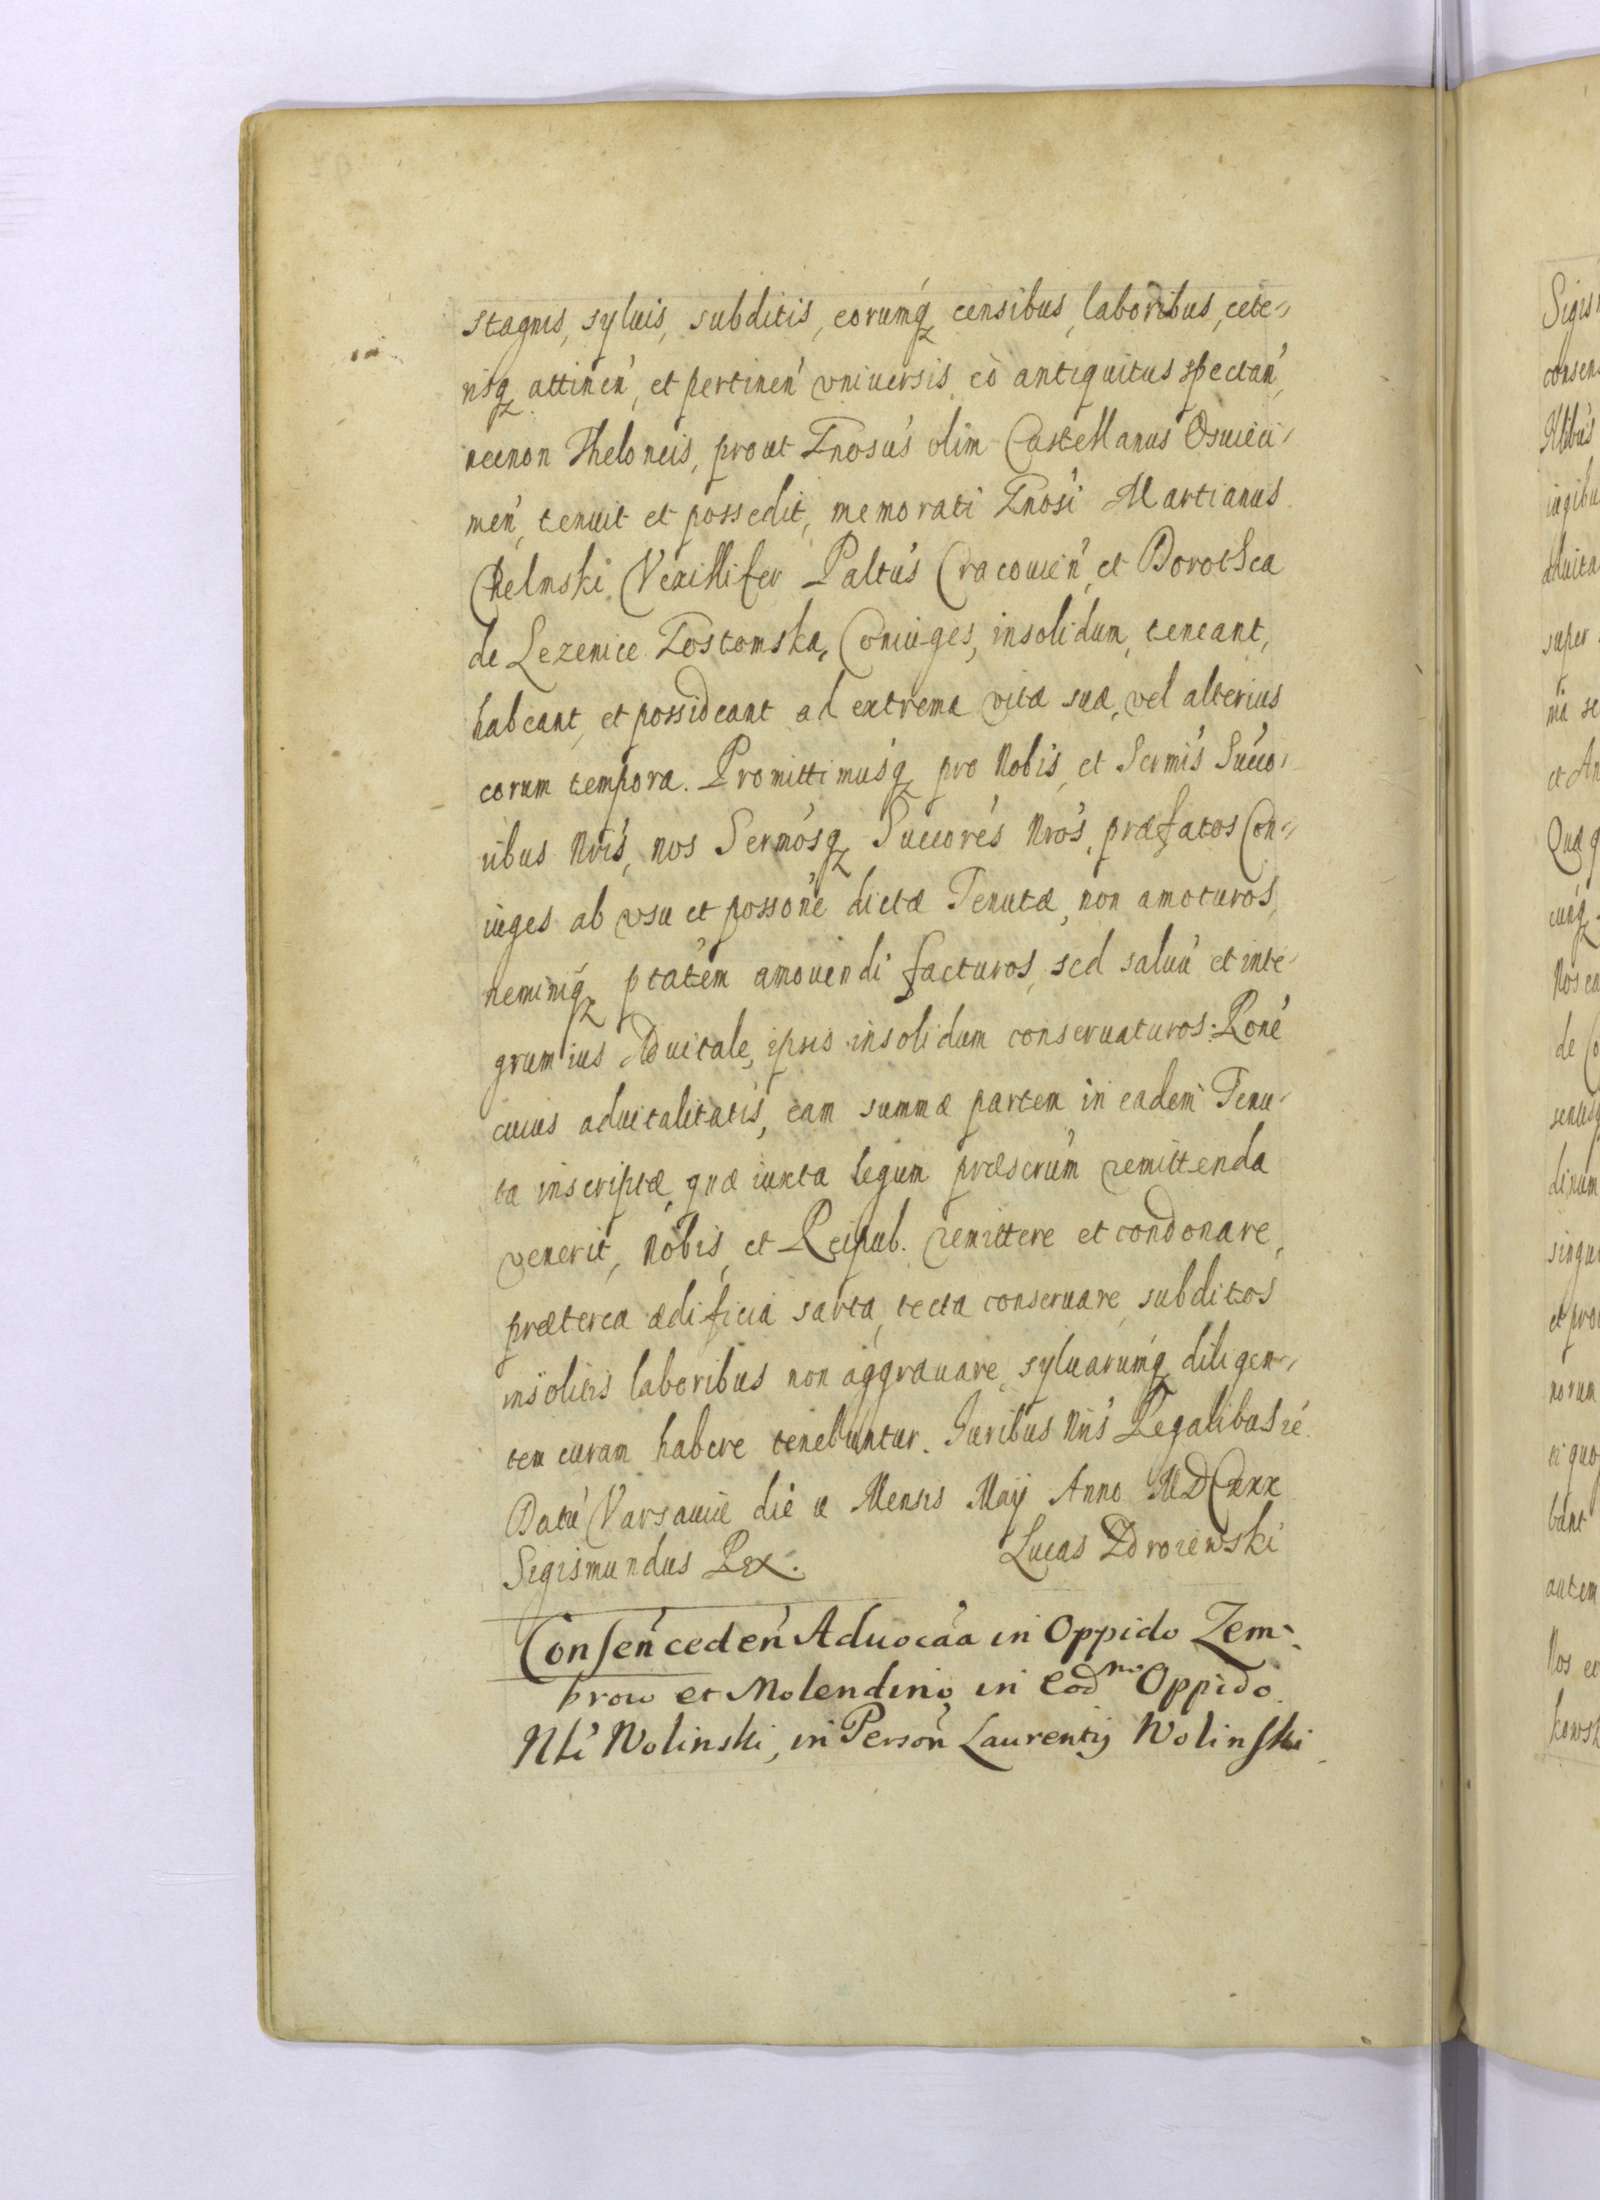 stagnis, syluis, subditis, eorumq́ censibus, laboribus, cete-
risq́ attinen̄, et pertinen̄ vniuersis eò antiquitus spectan̄,
necnon Theloneis, prout Gnosus olim Castellanus Osuieci-
men̄, tenuit et possedit, memorati Gnosi Martianus
Chelmski Vexillifer Paltus Cracouien̄, et Dorothea
de Lezenice Gostomska, Coniuges, insolidum, teneant,
habeant, et possideant ad extrema vitæ suæ, vel alterius
eorum tempora. Promittimusq́ pro Nobis, et Sermis Succo-
ribus Nris, nos Sermosq́ Succores Nros, præfatos Con-
iuges ab vsu et possone dictæ Tenutæ, non amoturos,
neminiq́ ptatem amouendi facturos, sed saluu et inte-
grum ius Aduitale, ipsis insolidum conseruaturos. Rone
cuius aduitalitatis, eam summæ partem in eadem Tenu-
ta inscriptæ, quæ iuxta legum præscrum remittenda
venerit, Nobis, et Reipub. remittere et condonare,
præterea ædificia sarta, tecta conseruare, subditos
insolitis laboribus non aggrauare, syluarumq́ diligen-
tem curam habere tenebuntur. Iuribus Nris Regalibus re.
Datu Varsauiæ die v Mensis Maij Anno MDCxxx
Sigismundus Rex. Lucas Zdroiewski
Consen̄ ceden̄ Aduocãa in Oppido Zem-
brow et Molendino in eodmo Oppido
Nli Wolinski, in Person̄ Laurentij Wolinski